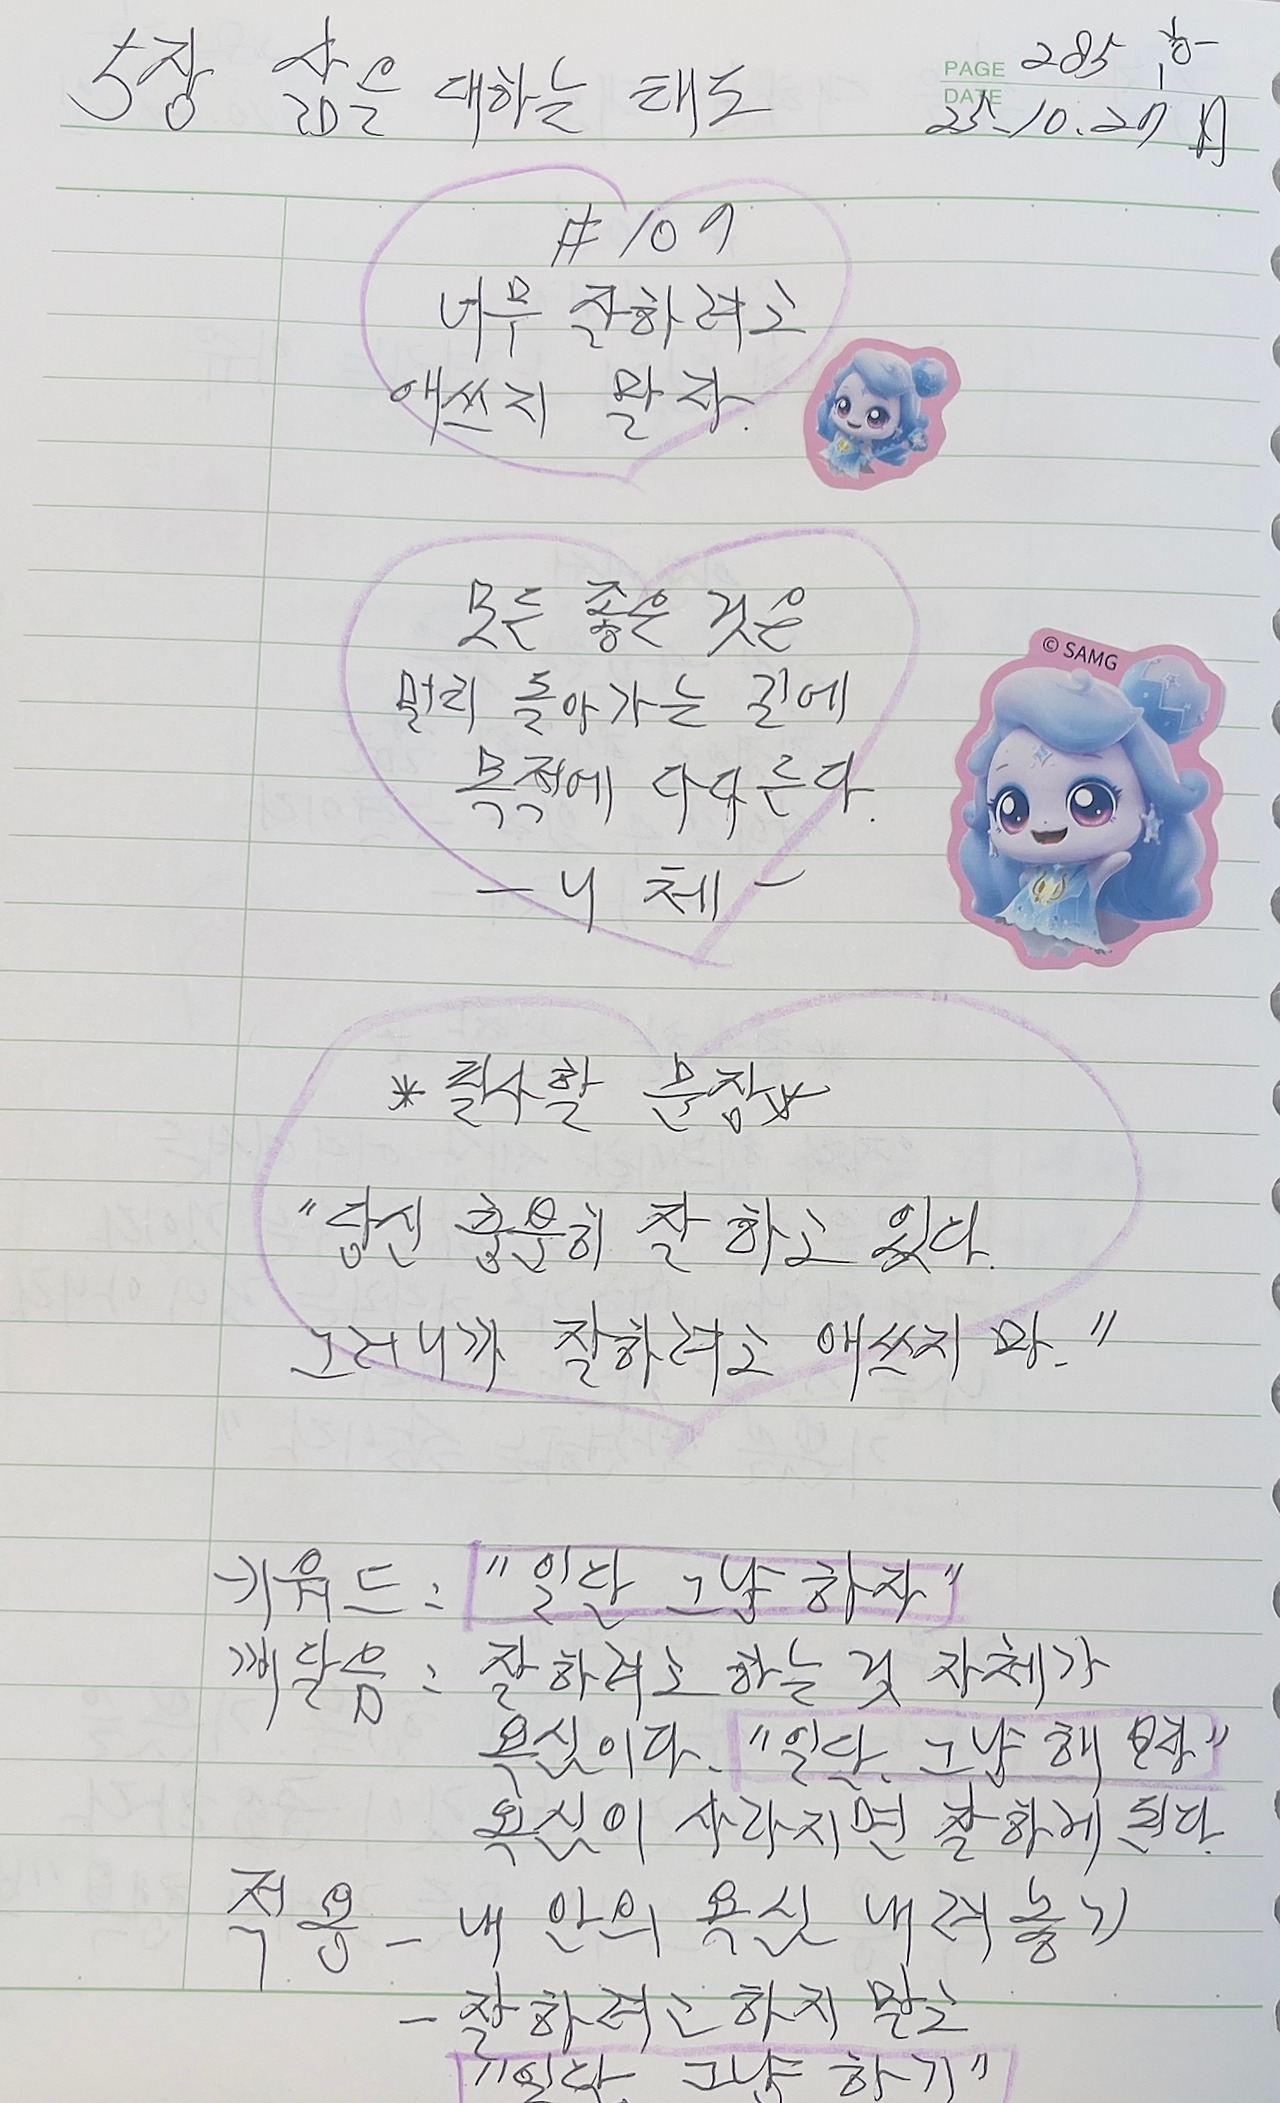 5장 삶을 대하는 태도
PAGE 285
DATE 25.10.27 月
#109
너무 잘하려고
애쓰지 말자.
모든 좋은 것은
멀리 돌아가는 길에
목적에 다다른다.
- 니체 -
© SAMG
* 필사할 문장 *
"당신 충분히 잘 하고 있다.
그러니까 잘하려고 애쓰지 마."
키워드 : "일단 그냥 하자"
깨달음 : 잘하려고 하는 것 자체가
욕심이다. "일단. 그냥 해 보자"
욕심이 사라지면 잘하게 된다.
적용 - 내 안의 욕심 내려놓기
- 잘하려고 하지 말고
"일단. 그냥 하기"